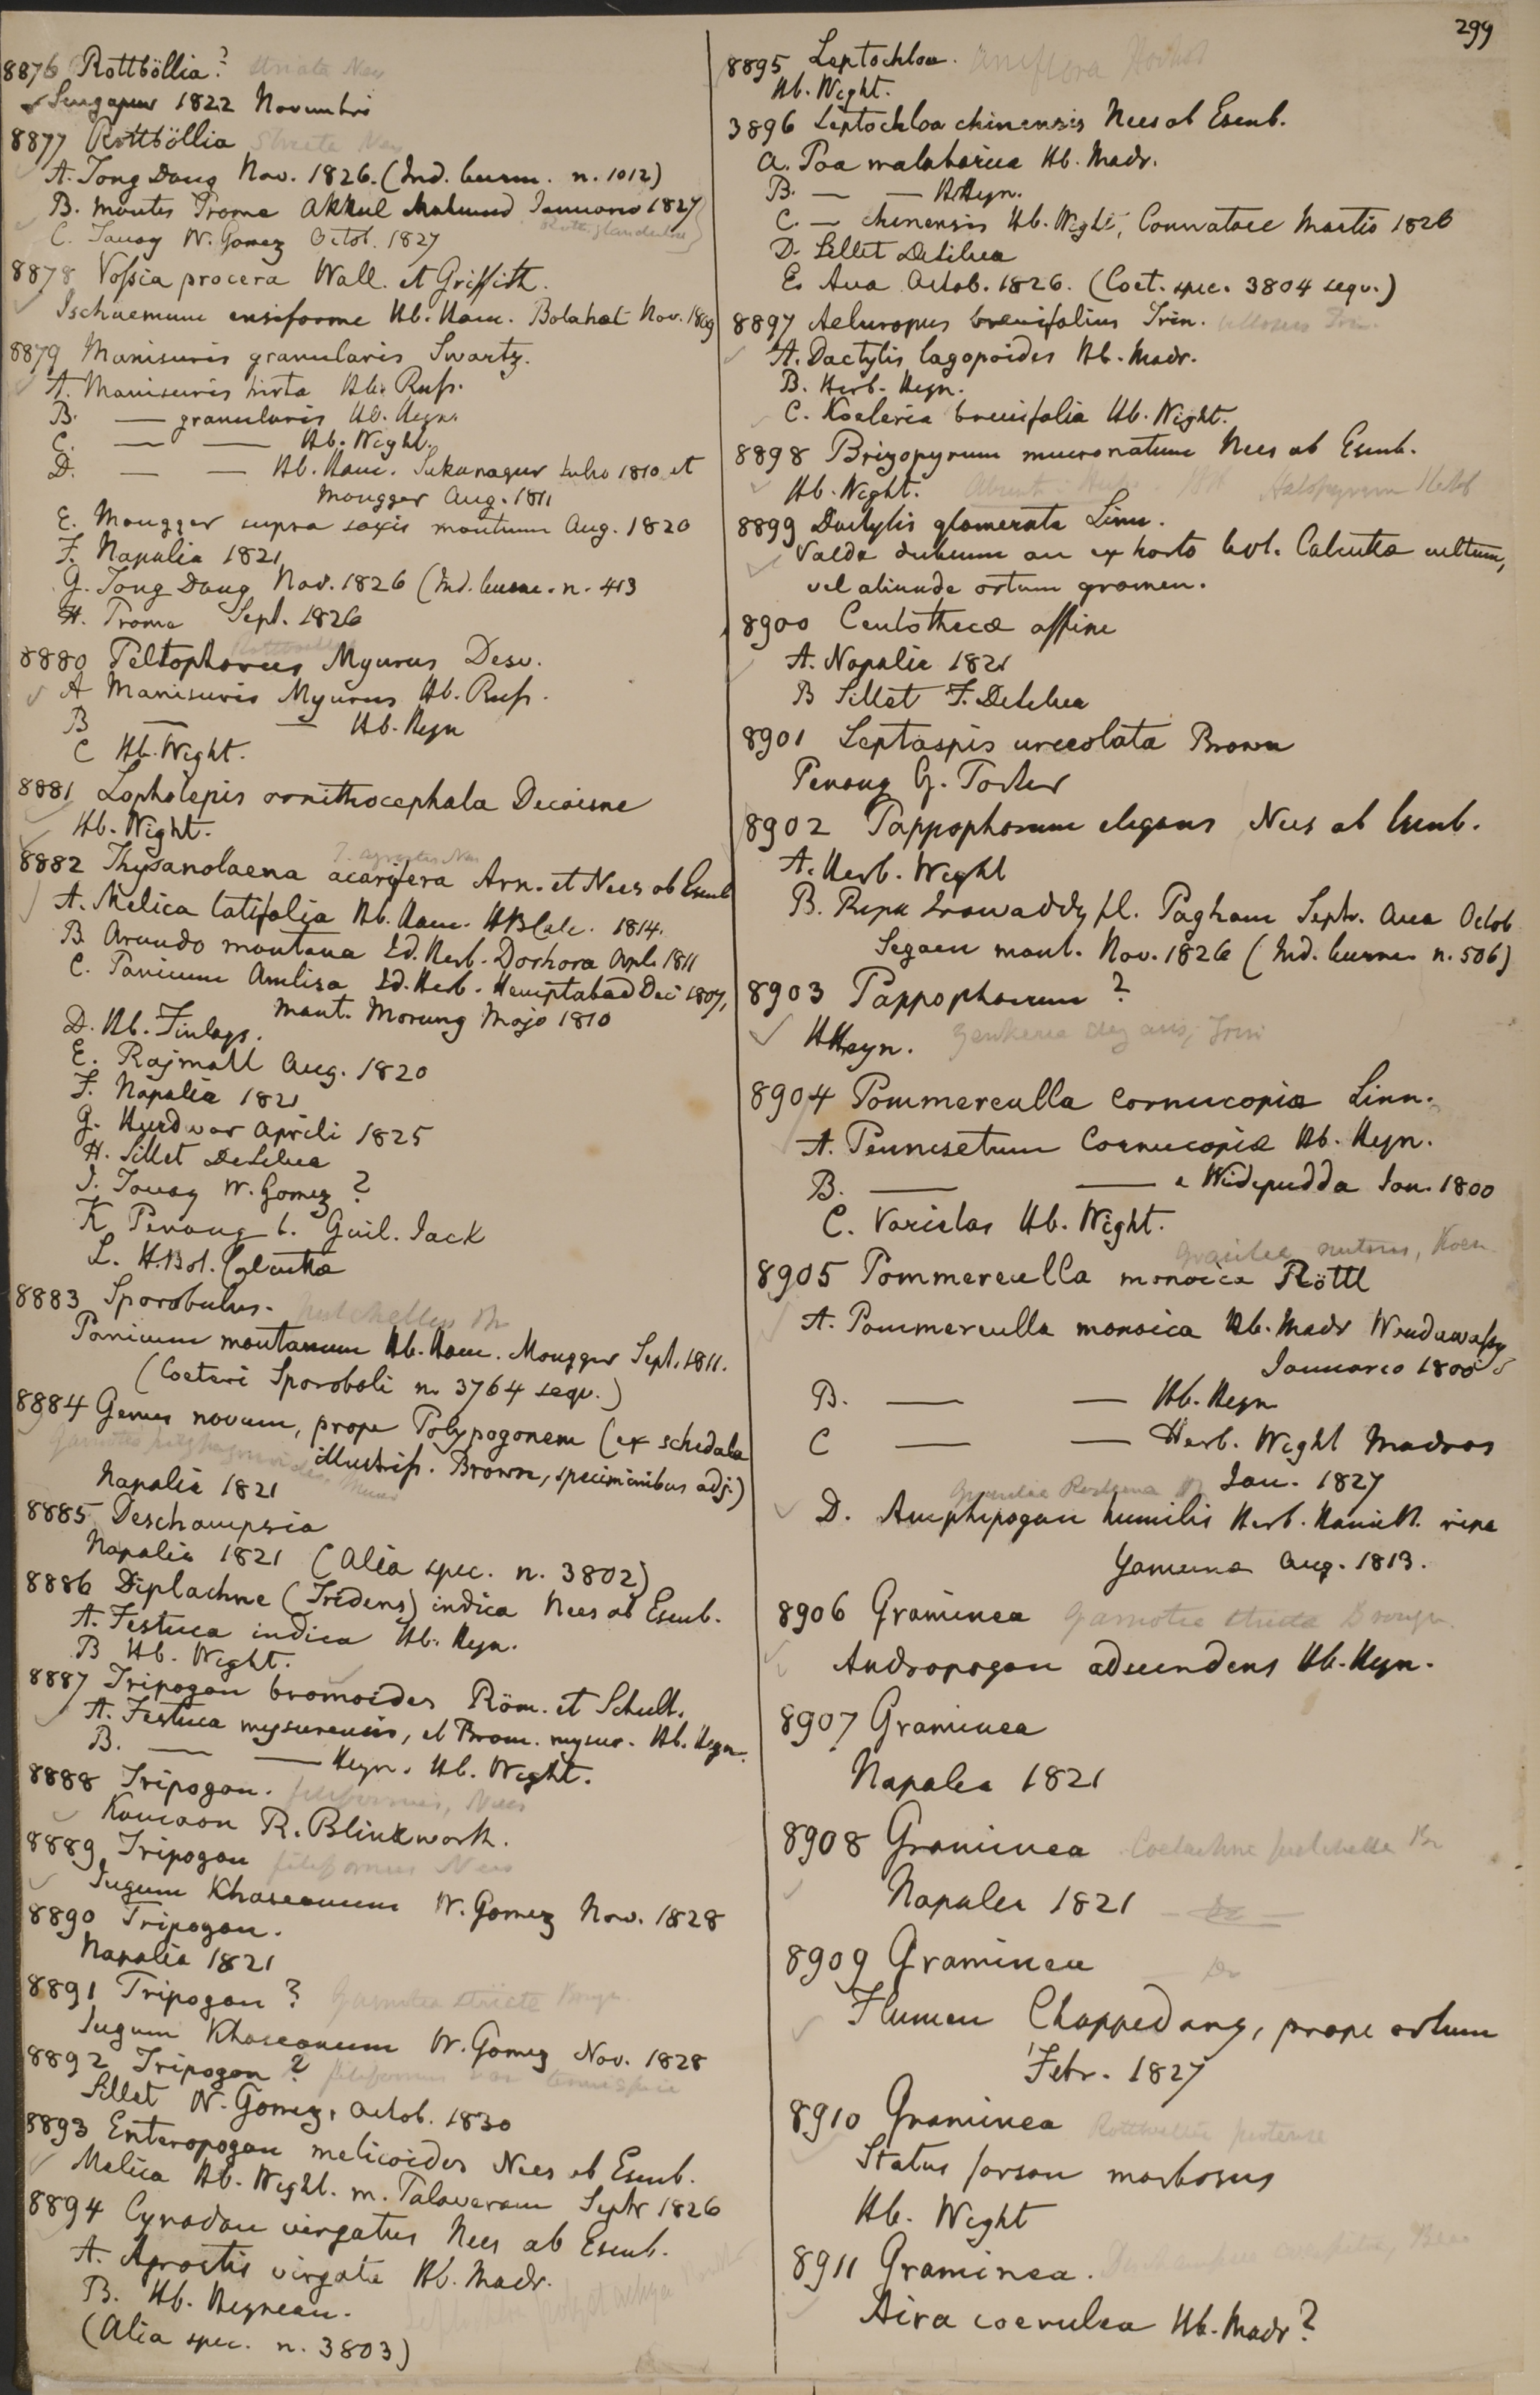 299
8876 Rottböllia? striata Nees
Singapur 1822 Novembri
8877 Rottböllia Striata Nees
A. Tong Dong Nov. 1826. (Ind. burm. n. 1012)
B. montes Prome Akkul Mahmud Januario 1827
C. Tavoy W. Gomez Octob. 1827
8878 Vossia procera Wall. et Griffith.
Ischaemum ensiforme Hb. Ham. Bolahat Nov. 1809
8879 Manisuris granularis Swartz.
A. Manisuris hirta Hb. Russ.
B. — granularis Hb. Heyn.
C. — — Hb. Wight.
D. — — Hb. Ham. Sukanagur Julio 1810 et
Mongger Aug. 1811
E. Mongger supra saxis montium Aug. 1820
F. Napalia 1821
G. Tong Dong Nov. 1826 (Ind. burm. n. 413
H. Prome Sept. 1826
Rottboellia
8880 Peltophorus Myurus Desv.
A Manisuris Myurus Hb. Russ.
B — — Hb. Heyn
C Hb. Wight.
8881 Lopholepis ornithocephala Decaisne
Hb. Wight.
T. agrostis Nees
8882 Thysanolaena acarifera Arn. et Nees ab Esenb
A. Melica latifolia Hb. Ham. HBCalc. 1814.
B. Arundo montana Ed. Herb. Dorhora Apl. 1811
C. Panicum Amlisa Ed. Herb. Hemptabad Dec 1807,
mont. Morung Majo 1810
D. Hb. Finlays.
E. Rajmall Aug. 1820
F. Napalia 1821
G. Hurdwar Aprili 1825
H. Sillet DeSilva
I. Tavoy W. Gomez?
K Penang b. Guil. Jack
L. H. Bot. Calcutta
8883 Sporobulus. pulchellus Br
Panicum montanum Hb. Ham. Mongger Sept. 1811.
(Coeteri Sporoboli n. 3764 seqv.)
8884 Genus novum, prope Polypogonem (ex schedula
illustriss. Brown, speciminibus adj.)
Napalia 1821
8885 Deschampsia
Napalia 1821 (Alia spec. n. 3802)
8886 Diplachne (Tridens) indica Nees ab Esenb.
A. Festuca indica Hb. Heyn.
B Hb. Wight.
8887 Tripogon bromoides Röm. et Schult.
A. Festuca mysurensis, et Brom. mysur. Hb. Heyn.
B. — — Heyn. Hb. Wight.
8888 Tripogon. filiformis, Nees
Kamaon R. Blinkworth.
8889 Tripogon filiformis Nees
Jugum Khaseanum W. Gomez Nov. 1828
8890 Tripogon.
Napalia 1821
8891 Tripogon? Garnotia stricta Brongn.
Jugum Khaseanum W. Gomez Nov. 1828
8892 Tripogon? filiformis var tenuispica
Sillet W. Gomez, Octob. 1830
8893 Enteropogon melicoides Nees ab Esenb.
Melica Hb. Wight. m. Talaveram Septr 1826
8894 Cynodon virgatus Nees ab Esenb.
A. Agrostis virgata Hb. Madr.
B. Hb. Heynean.
(Alia spec. n. 3803)
8895 Leptochloa. uniflora Hochst
Hb. Wight.
3896 Leptochloa chinensis Nees ab Esenb.
A. Poa malabarica Hb. Madr.
B. — — HHeyn.
C. — chinensis Hb. Wight, Connatore Martio 1826
D. Sillet DeSilva
E. Ava Octob. 1826. (Coet. spec. 3804 seqv.)
8897 Aeluropus brevifolius Trin. villosus Trin.
A. Dactylis lagopoides Hb. Madr.
B. Herb. Heyn.
C. Koeleria brevifolia Hb. Wight.
8898 Brizopyrum mucronatum Nees ab Esenb.
Hb. Wight. Halopyrum
8899 Dactylis glomerata Linn.
Valde dubium an ex horto bot. Calcutta cultum,
vel aliunde ortum gramen.
8900 Centothecæ affine
A. Napalia 1821
B Sillet F. DeSilva
8901 Leptaspis urceolata Brown
Penang G. Porter
8902 Pappophorum elegans Nees ab Esenb.
A. Herb. Wight
B. Ripa Irawaddy fl. Pagham Septr. Ava Octob
Segaen mont. Nov. 1826 (Ind. burm. n. 506)
8903 Pappophorum?
HHeyn. Zenkeria elegans, Trin
8904 Pommereulla Cornucopiæ Linn.
A. Pennisetum Cornucopiæ Hb. Heyn.
B. — — e Widepudda Jan. 1800
C. Varietas Hb. Wight.
Graulea nutans, Koen
8905 Pommereulla monoica Röttl
A. Pommereulla monoica Hb. Madr Wendawassy
Januario 1800
B. — — Hb. Heyn
C — — Herb. Wight Madras
Jan. 1827
D. Amphipogon humilis Herb. Hamilt. ripa
Yamuna Aug. 1813.
8906 Graminea Garnotia stricta Brongn.
Andropogon aduendens Hb. Heyn.
8907 Graminea
Napalia 1821
8908 Graminea Coelachne pulchella Br
Napalia 1821 — Do —
8909 Graminea — Do —
Flumen Chappedong, prope ortum
Febr. 1827
8910 Graminea Rottboellia
Status forsan morbosus
Hb. Wight
8911 Graminea. Deschampsia caespitosa, Beau
Aira coerulea Hb. Madr?